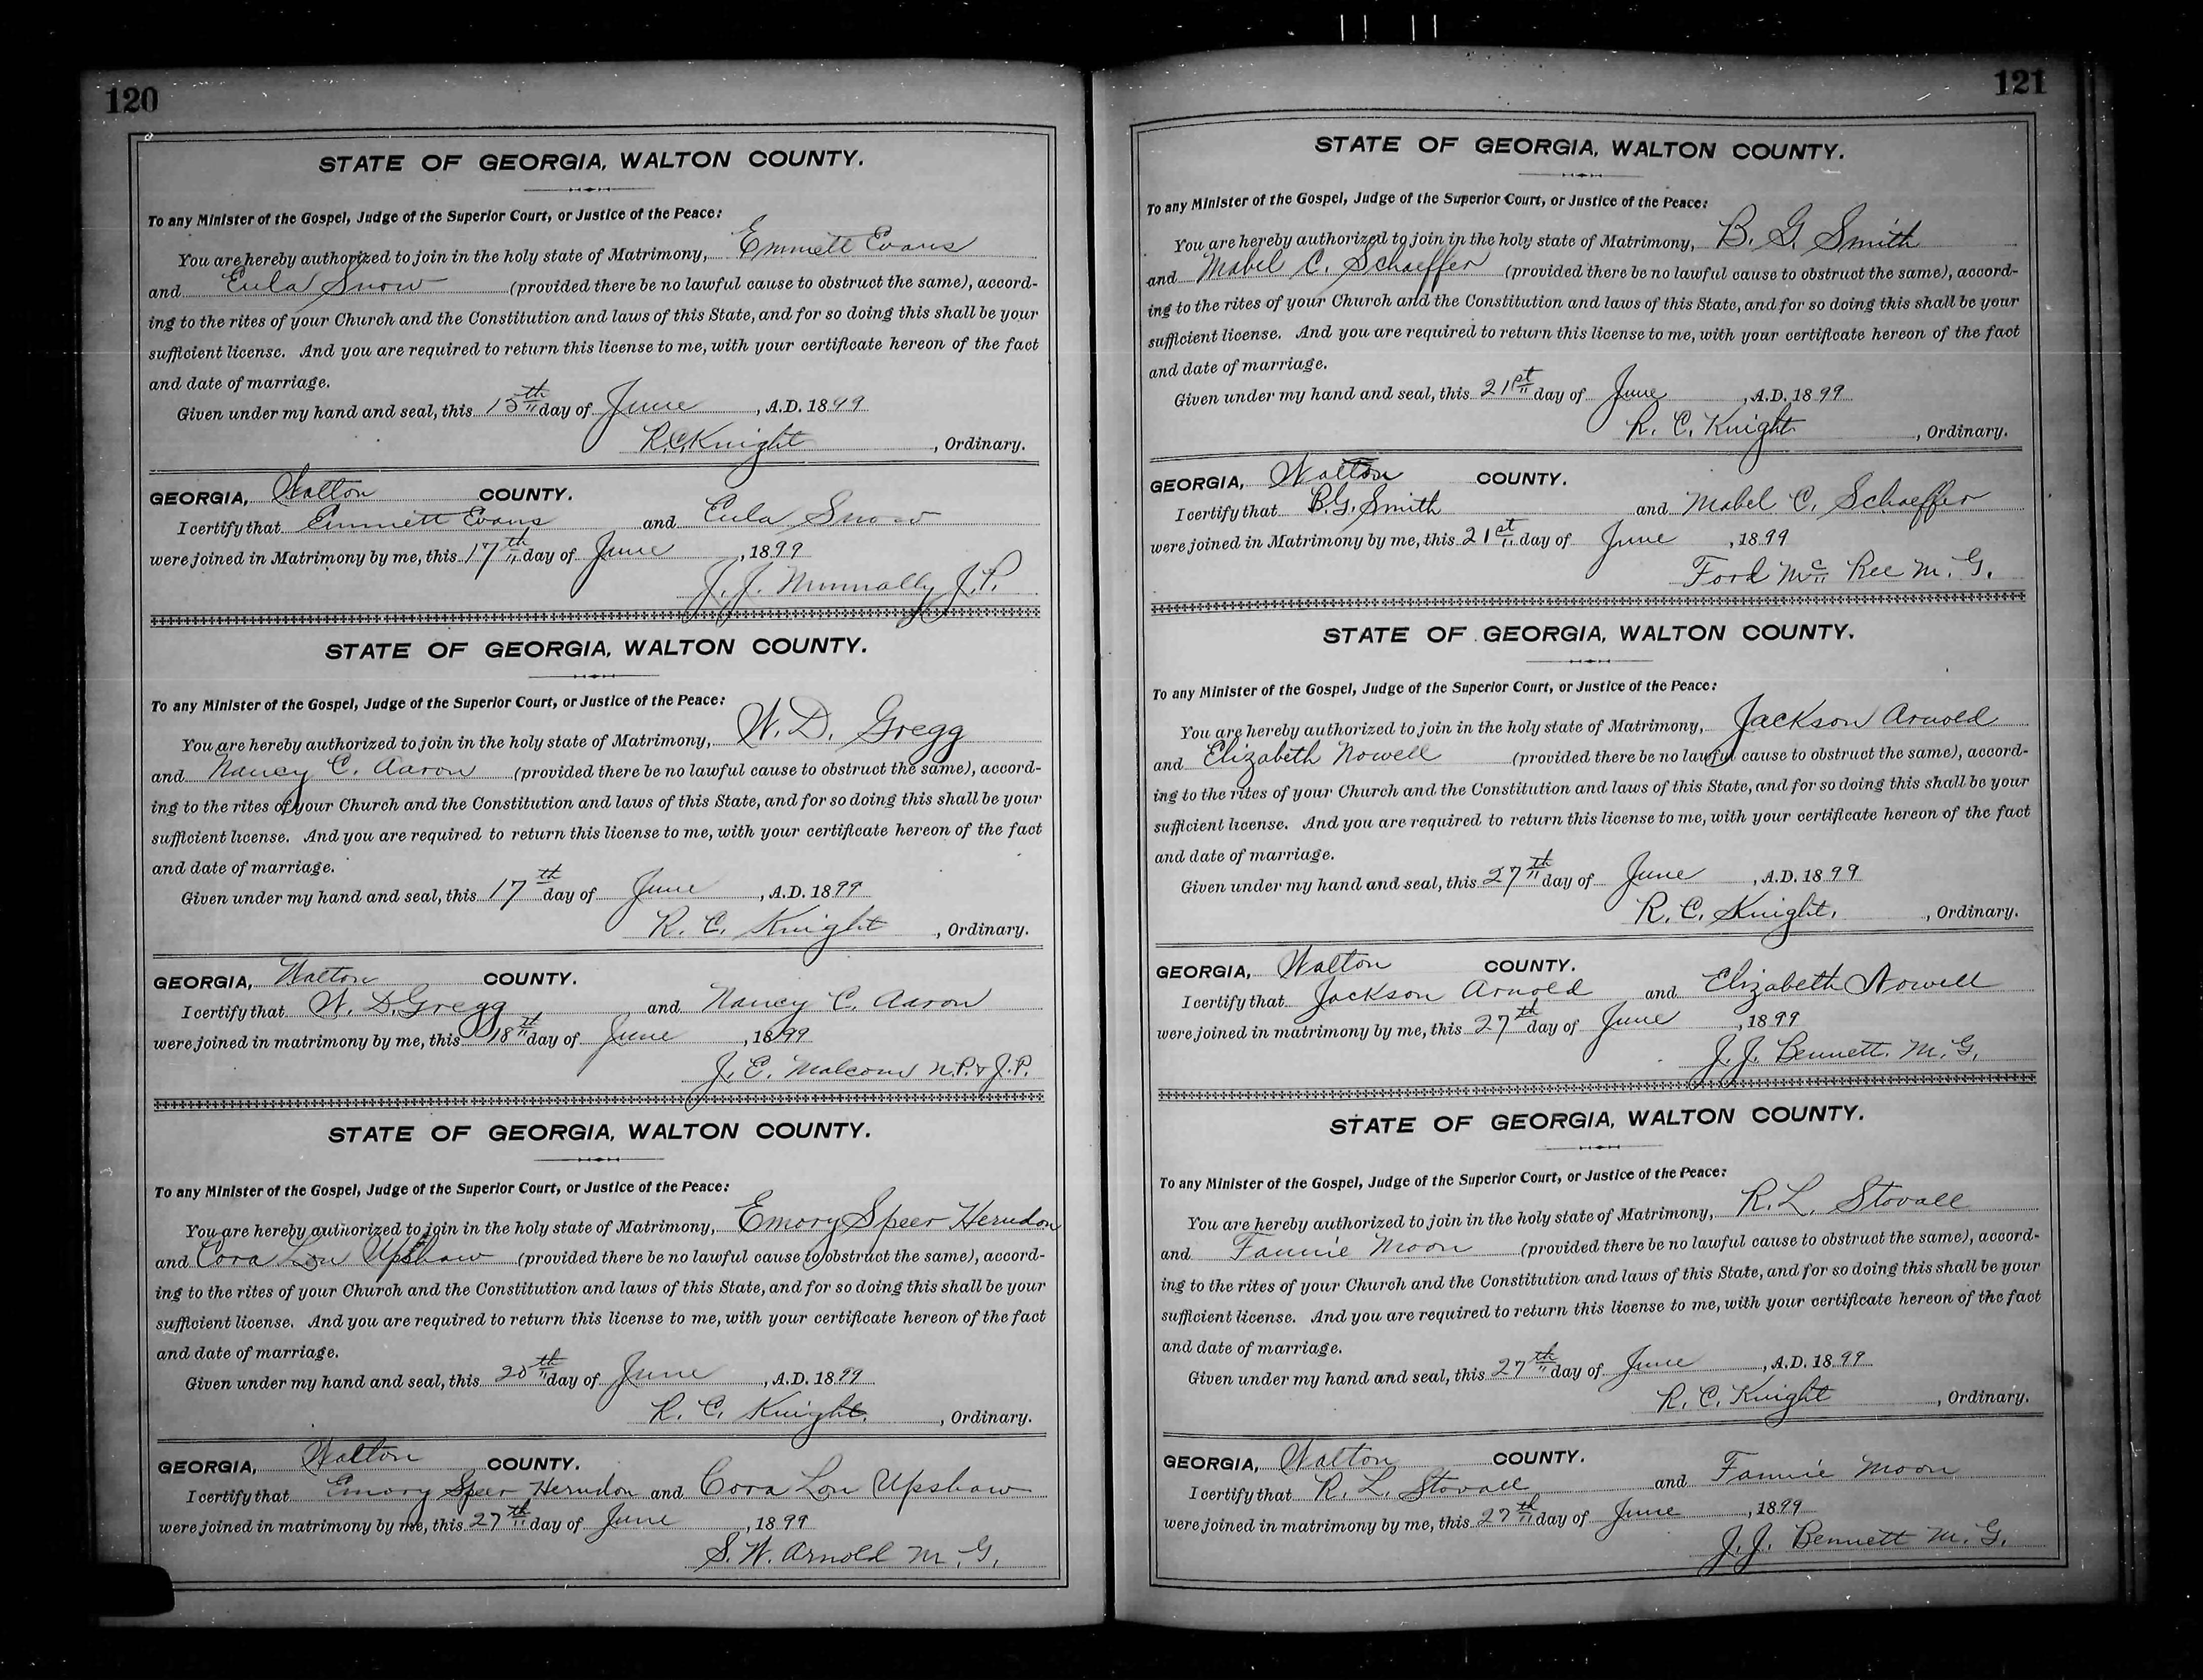 120
STATE OF GEORGIA, WALTON COUNTY.
To any Minister of the Gospel, Judge of the Superior Court, or Justice of the Peace:
You are hereby authorized to join in the holy state of Matrimony, Emmett Evans
and Eula Snow (provided there be no lawful cause to obstruct the same), accord-
ing to the rites of your Church and the Constitution and laws of this State, and for so doing this shall be your
sufficient license. And you are required to return this license to me, with your certificate hereon of the fact
and date of marriage.
Given under my hand and seal, this 15th day of June, A.D. 1899
R.C. Knight, Ordinary.
GEORGIA, Walton COUNTY.
I certify that Emmett Evans and Eula Snow
were joined in Matrimony by me, this 17th day of June, 1899
J. J. Nunnally J.P.
STATE OF GEORGIA, WALTON COUNTY.
To any Minister of the Gospel, Judge of the Superior Court, or Justice of the Peace:
You are hereby authorized to join in the holy state of Matrimony, W. D. Gregg
and Nancy C. Aaron (provided there be no lawful cause to obstruct the same), accord-
ing to the rites of your Church and the Constitution and laws of this State, and for so doing this shall be your
sufficient license. And you are required to return this license to me, with your certificate hereon of the fact
and date of marriage.
Given under my hand and seal, this 17th day of June, A.D. 1899
R. C. Knight, Ordinary.
GEORGIA, Walton COUNTY.
I certify that W. D. Gregg and Nancy C. Aaron
were joined in matrimony by me, this 18th day of June, 1899
J. E. Malcom N.P. & J.P.
STATE OF GEORGIA, WALTON COUNTY.
To any Minister of the Gospel, Judge of the Superior Court, or Justice of the Peace:
You are hereby authorized to join in the holy state of Matrimony, Emory Speer Herndon
and Cora Lou Upshaw (provided there be no lawful cause to obstruct the same), accord-
ing to the rites of your Church and the Constitution and laws of this State, and for so doing this shall be your
sufficient license. And you are required to return this license to me, with your certificate hereon of the fact
and date of marriage.
Given under my hand and seal, this 20th day of June, A.D. 1899
R. C. Knight, Ordinary.
GEORGIA, Walton COUNTY.
I certify that Emory Speer Herndon and Cora Lou Upshaw
were joined in matrimony by me, this 27th day of June, 1899
S. W. Arnold M. G.
121
STATE OF GEORGIA, WALTON COUNTY.
To any Minister of the Gospel, Judge of the Superior Court, or Justice of the Peace:
You are hereby authorized to join in the holy state of Matrimony, B. G. Smith
and Mabel C. Schaeffer (provided there be no lawful cause to obstruct the same), accord-
ing to the rites of your Church and the Constitution and laws of this State, and for so doing this shall be your
sufficient license. And you are required to return this license to me, with your certificate hereon of the fact
and date of marriage.
Given under my hand and seal, this 21st day of June, A.D. 1899
R. C. Knight, Ordinary.
GEORGIA, Walton COUNTY.
I certify that B. G. Smith and Mabel C. Schaeffer
were joined in Matrimony by me, this 21st day of June, 1899
Ford Mc Ree M. G.
STATE OF GEORGIA, WALTON COUNTY.
To any Minister of the Gospel, Judge of the Superior Court, or Justice of the Peace:
You are hereby authorized to join in the holy state of Matrimony, Jackson Arnold
and Elizabeth Nowell (provided there be no lawful cause to obstruct the same), accord-
ing to the rites of your Church and the Constitution and laws of this State, and for so doing this shall be your
sufficient license. And you are required to return this license to me, with your certificate hereon of the fact
and date of marriage.
Given under my hand and seal, this 27th day of June, A.D. 1899
R. C. Knight, Ordinary.
GEORGIA, Walton COUNTY.
I certify that Jackson Arnold and Elizabeth Nowell
were joined in matrimony by me, this 27th day of June, 1899
J. J. Bennett. M. G.
STATE OF GEORGIA, WALTON COUNTY.
To any Minister of the Gospel, Judge of the Superior Court, or Justice of the Peace:
You are hereby authorized to join in the holy state of Matrimony, R. L. Stovall
and Fannie Moon (provided there be no lawful cause to obstruct the same), accord-
ing to the rites of your Church and the Constitution and laws of this State, and for so doing this shall be your
sufficient license. And you are required to return this license to me, with your certificate hereon of the fact
and date of marriage.
Given under my hand and seal, this 27th day of June, A.D. 1899
R. C. Knight, Ordinary.
GEORGIA, Walton COUNTY.
I certify that R. L. Stovall and Fannie Moon
were joined in matrimony by me, this 27th day of June, 1899
J. J. Bennett M. G.